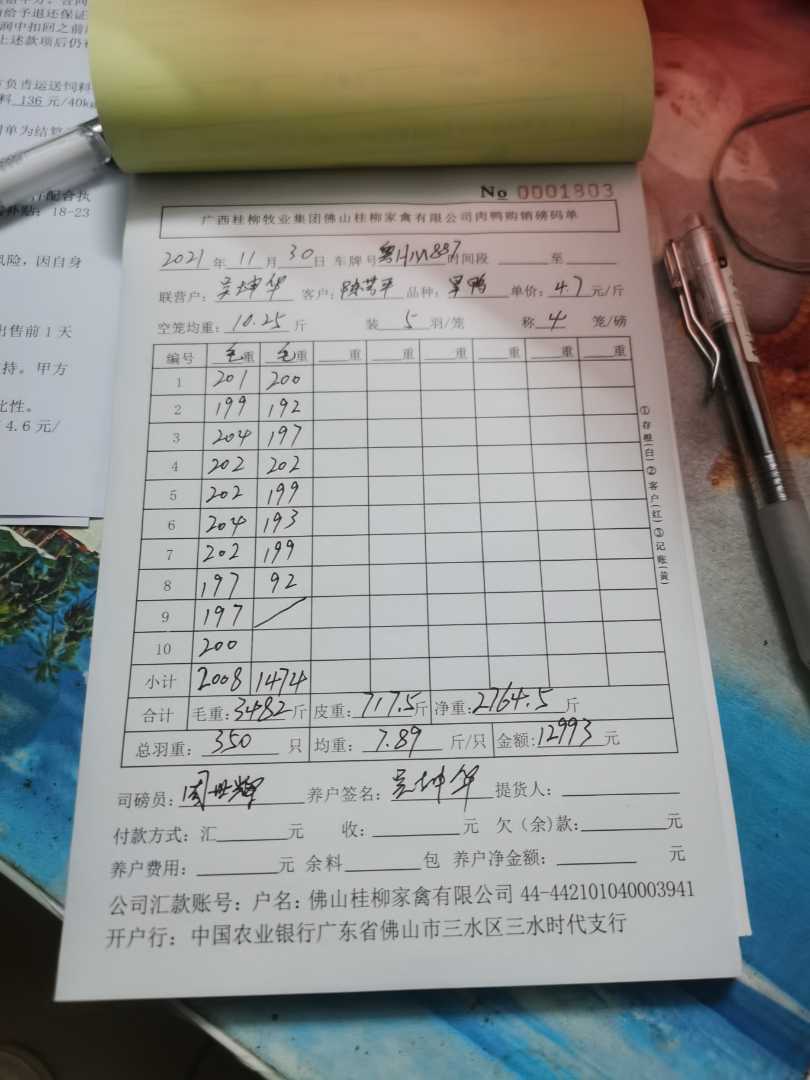 给予退还保证
润中扣回之前
上述款项后仍
负责运送饲料
料 136 元/40k
单为结算
配合执
补贴: 18-23
风险，因自身
出售前 1 天
持。甲方
比性。
4.6 元/
No 0001803
广西桂柳牧业集团佛山桂柳家禽有限公司肉鸭购销磅码单
2021 年 11 月 30 日 车牌号 粤HM887 时间段 至
联营户: 吴坤华 客户: 品种: 单价: 4.7 元/斤
空笼均重: 10.25 斤 装 5 羽/笼 称 4 笼/磅
编号 毛重 毛重 重 重 重 重 重 重
1 201 200
2 199 192
3 204 197
4 202 202
5 202 199
6 204 193
7 202 199
8 197 92
9 197
10 200
小计 2008 1474
合计 毛重: 3482 斤 皮重: 717.5 斤 净重: 2764.5 斤
总羽重: 350 只 均重: 7.89 斤/只 金额: 12993 元
司磅员: 周世辉 养户签名: 吴坤华 提货人:
付款方式: 汇 元 收: 元 欠(余)款: 元
养户费用: 元 余料 包 养户净金额: 元
公司汇款账号: 户名: 佛山桂柳家禽有限公司 44-442101040003941
开户行: 中国农业银行广东省佛山市三水区三水时代支行
①存根(白)②客户(红)③记账(黄)